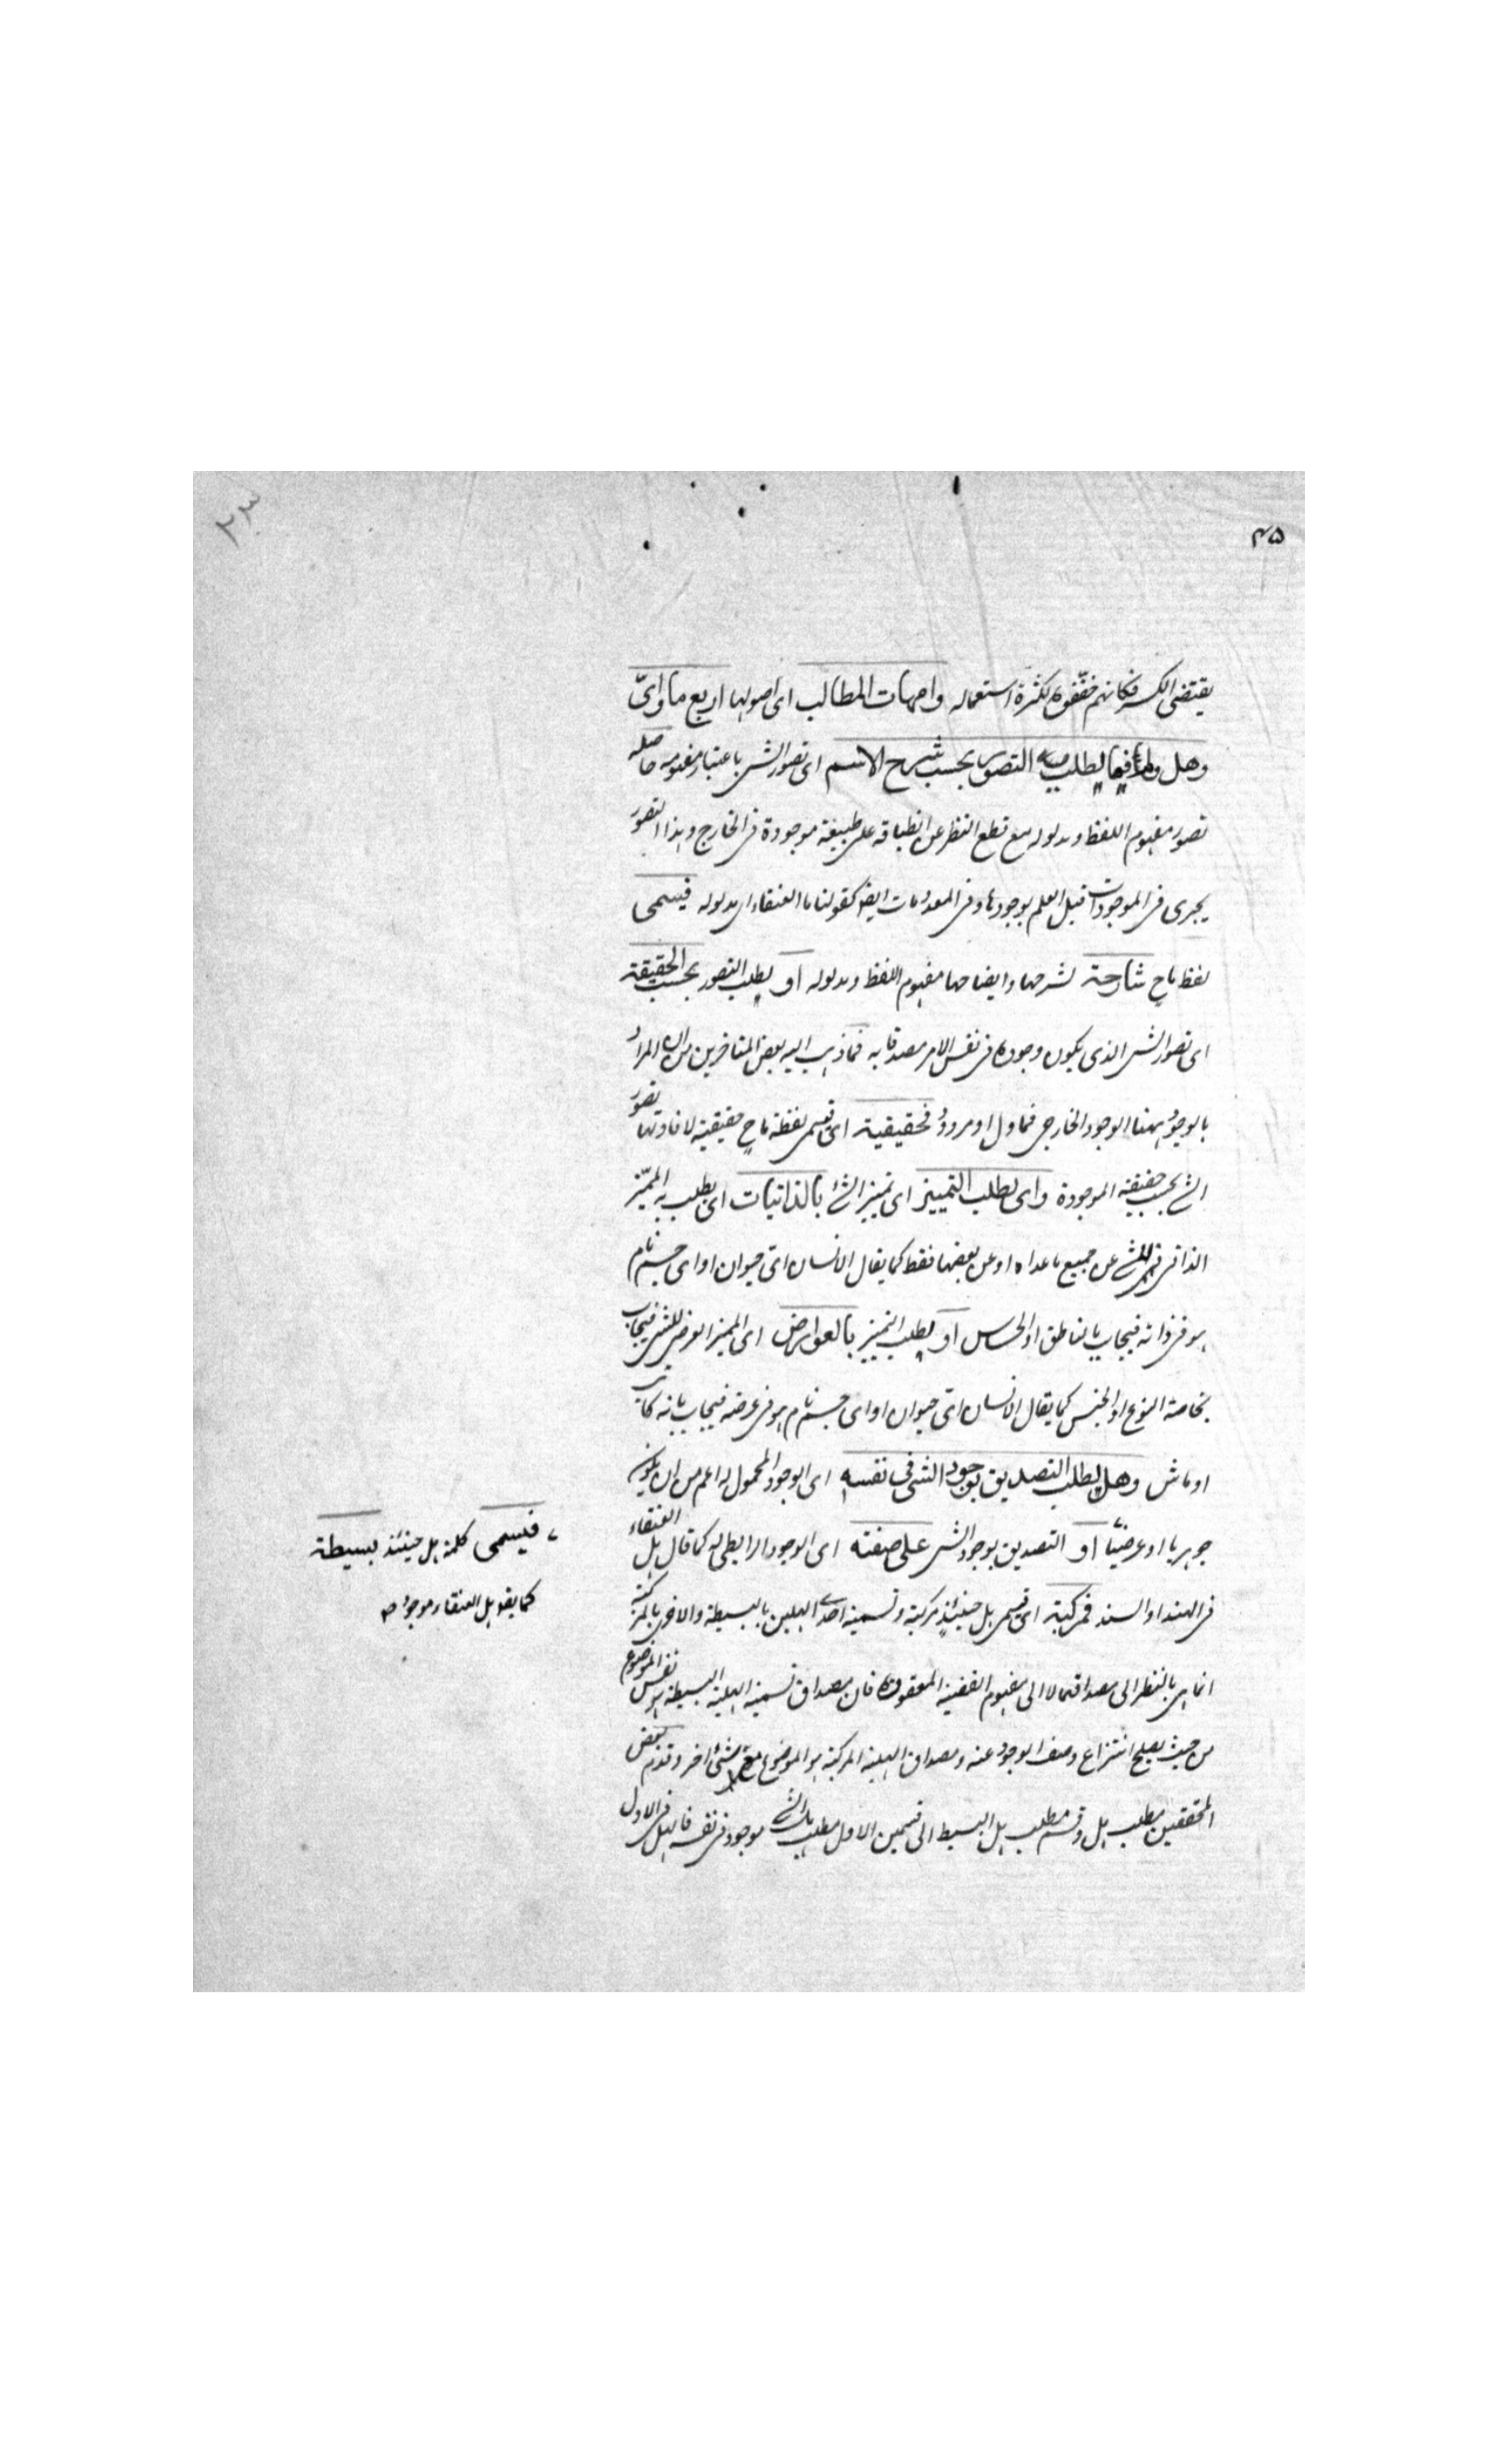 ٤٥
٢٣
يقتضى الكسر فكانهم خففوه لكثرة استعماله وامهات المطالب اى اصولها اربع ما واىّ
وهل ولم فما يطلب به التصور بحسب شرح الاسم اى تصور الشى باعتبار مفهومه حاصله
تصور مفهوم اللفظ ومدلوله مع قطع النظر عن انطباقه على طبيعة موجودة فى الخارج وهذا التصور
يجرى فى الموجودات قبل العلم بوجودها وفى المعدومات ايضا كقولنا ما العنقاء اى مدلوله فيسمى
لفظ ماح شارحة لشرحها وايضاحها مفهوم اللفظ ومدلوله او يطلب التصور بحسب الحقيقة
اى تصور الشى الذى يكون وجوده فى نفس الامر مصدقا به فما ذهب اليه بعض المتاخرين من ان المراد
بالوجود ههنا الوجود الخارجى فماول او مردود فحقيقية اى تسمى لفظة ماح حقيقية لافادتها تصور
الشئ بحسب حقيقته الموجودة واى لطلب التمييز اى تمييز الشئ بالذاتيات اى يطلب به المميّز
الذاتى للشئ عن جميع ما عداه او عن بعضها فقط كما يقال الانسان اىّ حيوان او اى جسم نام
هو فى ذاته فيجاب بالناطق او الحساس او يطلب التمييز بالعوارض اى المميز العرضى للشى فيجاب
بخاصة النوع او الجنس كما يقال الانسان اىّ حيوان او اى جسم نام هو فى عرضه فيجاب بانه كاتب
او ماش وهل لطلب التصديق بوجود الشى فى نفسه اى الوجود المحمول له اعم من ان يكون
جوهريا او عرضيا او التصديق بوجود الشى على صفته اى الوجود الرابطى له كما قال هل العنقاء
فى الهند او السند فمركبة اى تسمى هل حينئذ مركبة وتسمية احدى الهلين بالبسيطة والاخرى بالمركبة
انما هى بالنظر الى مصداقهما لا الى مفهوم القضية المعقودة فان مصداق تسمية الهلية البسيطة هو نفس الموضوع
من حيث يصلح انتزاع وصف الوجود عنه ومصداق الهلية المركبة هو الموضوع مع شئ اخر وقدم بعض
المحققين مطلب هل وقسم مطلب هل البسيط الى قسمين الاول مطلب هل الشئ موجود فى نفسه فالهل فى الاول
فيسمى كلمة هل حينئذ بسيطة
كما يقال هل العنقاء موجود صح